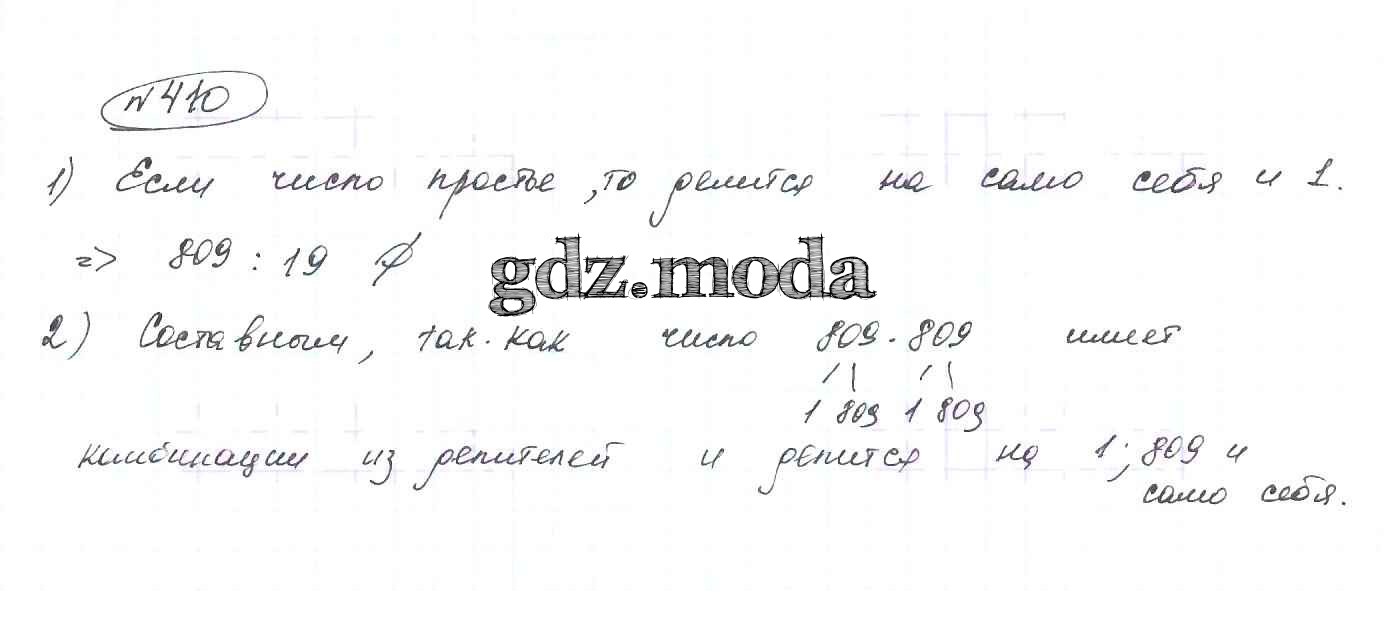 № 410
1) Если число простье, то делится на само себя и 1.
=> 809 : 19 ∅
gdz.moda
2) Составным, так. как число 809 · 809 имеет
1 809 1 809
комбинации из делителей и делится на 1; 809 и
само себя.